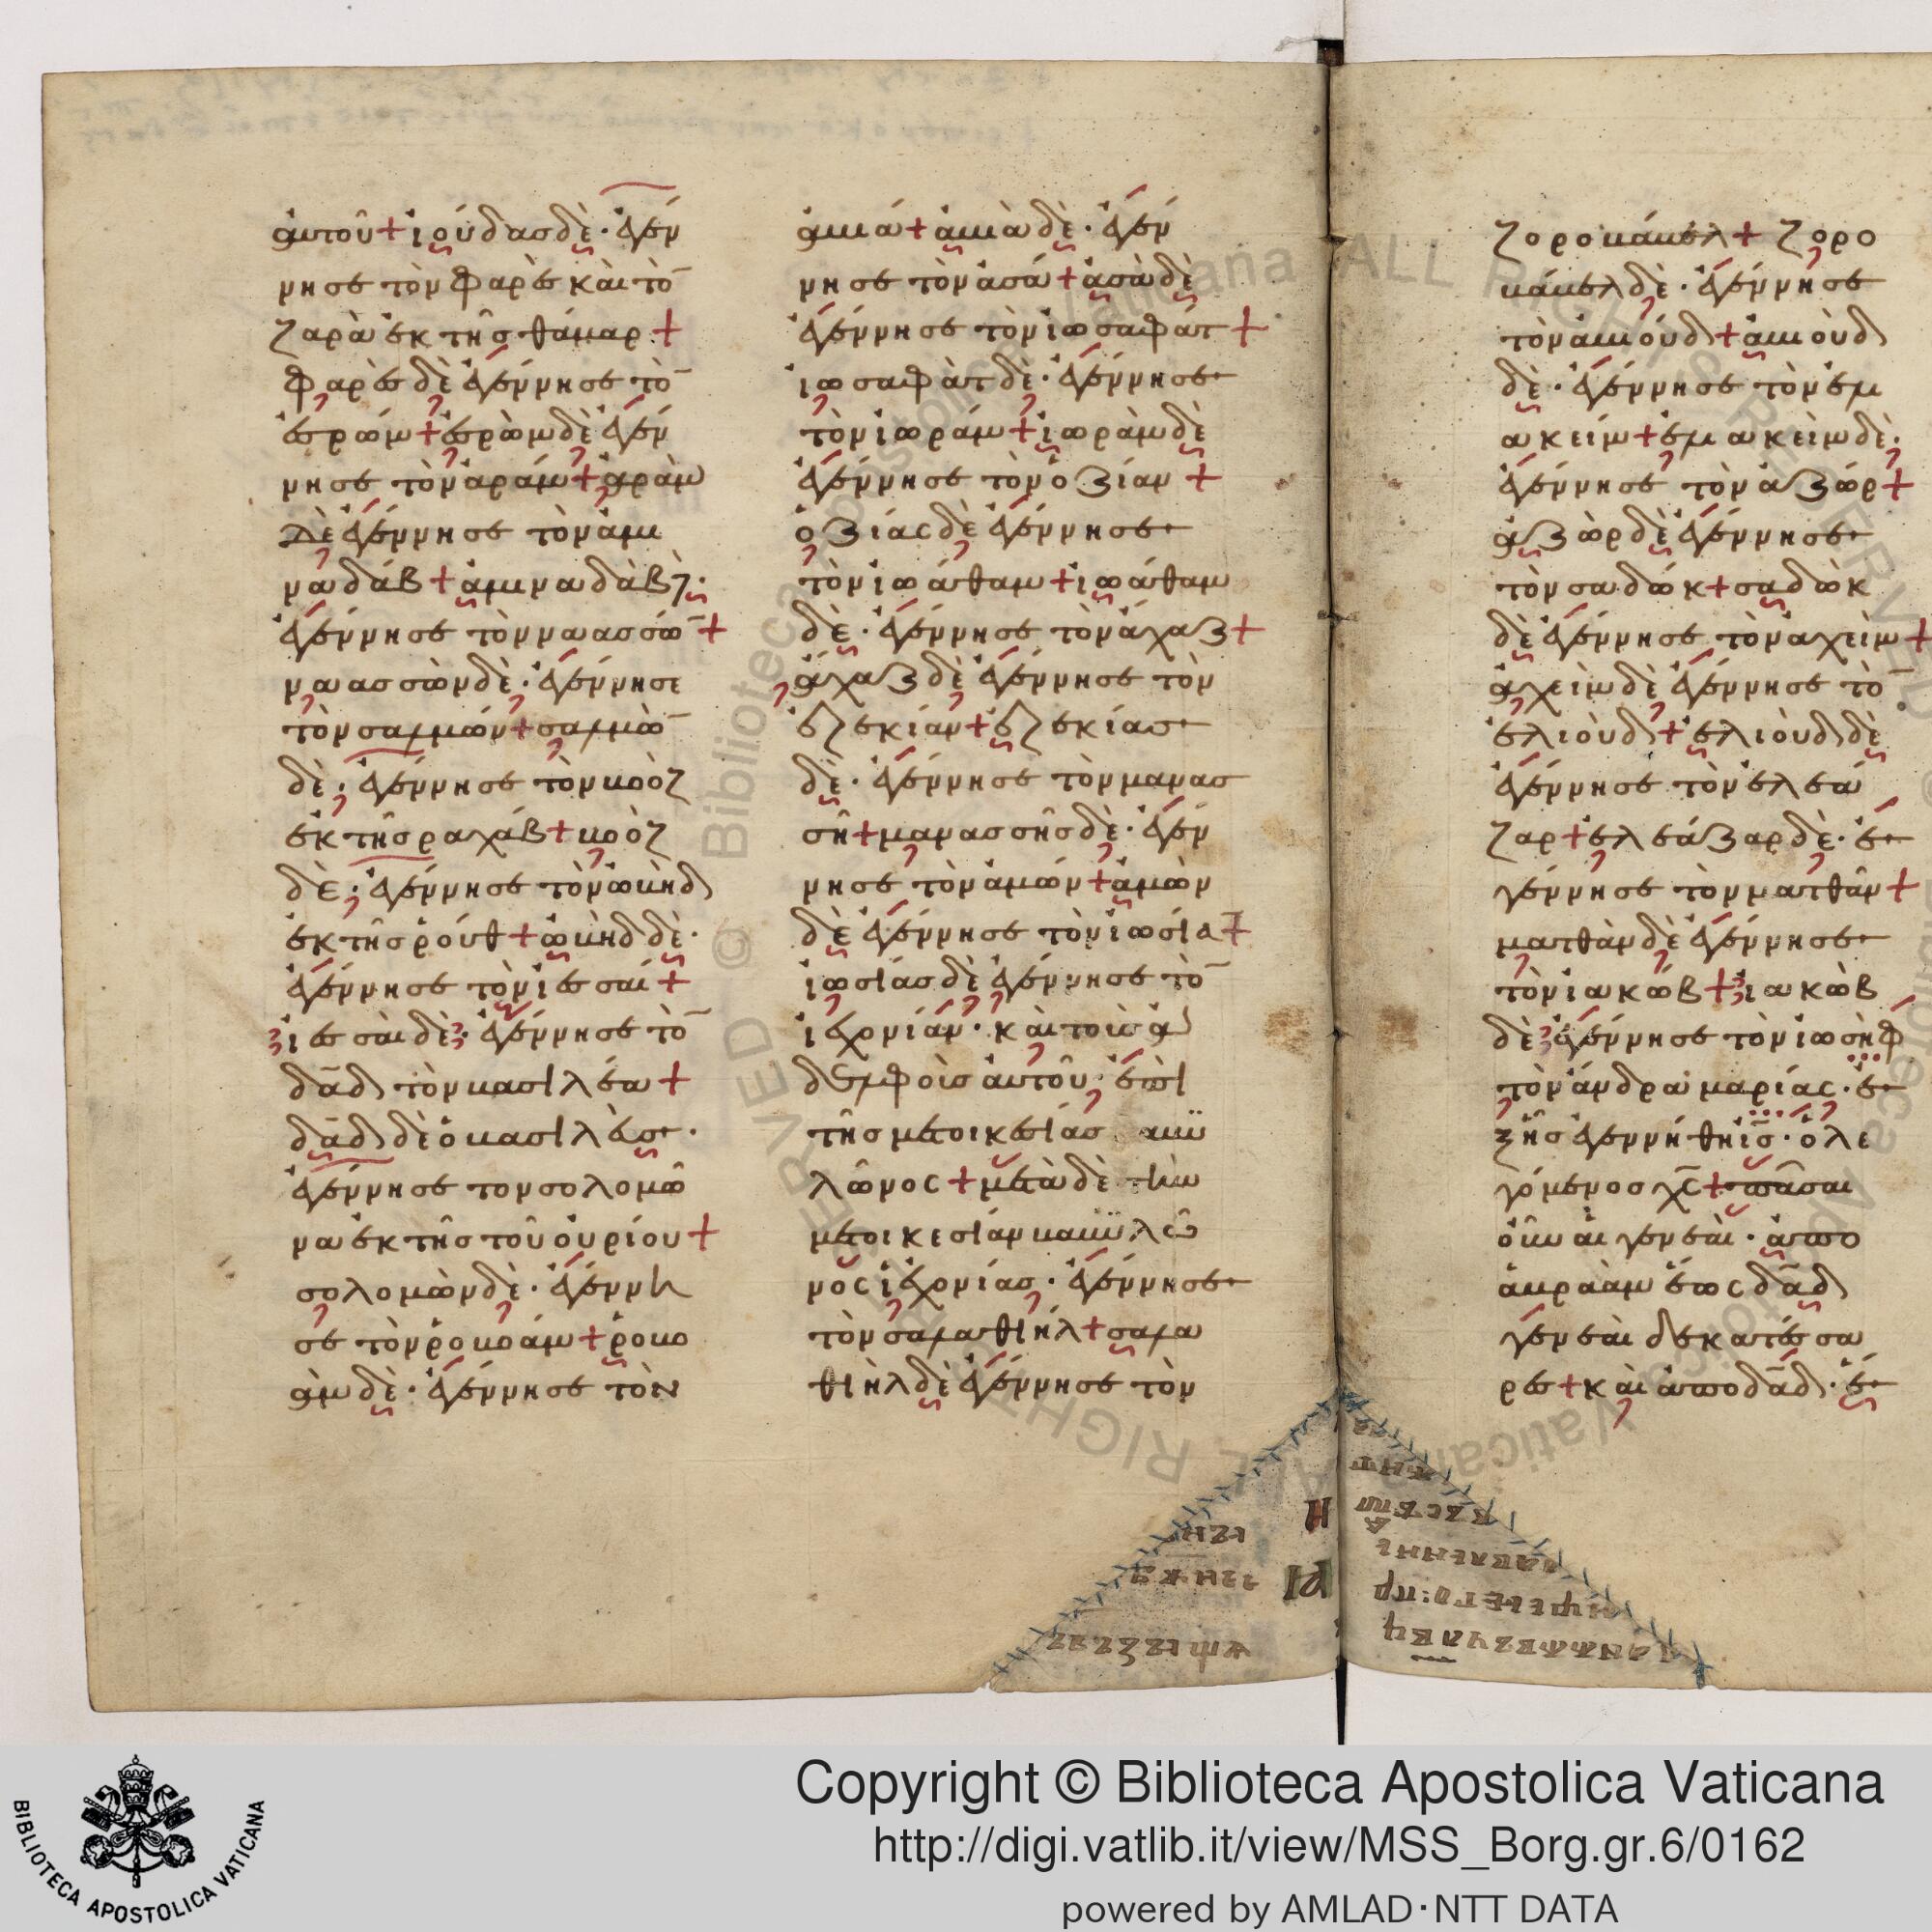 αὐτοῦ + ἰούδασ δὲ · ἐγέν
νησε τὸν φαρὲσ καὶ τὸ̄
ζαρὰ ἐκ τῆσ θάμαρ +
φαρὲσ δὲ ἐγέννησε τὸ̄
ἐσρώμ + ἐσρὼμ δὲ ἐγέν
νησε τὸν ἀράμ + ἀρὰμ
δὲ ἐγέννησε τὸν ἀμι
ναδάβ + ἀμιναδὰβ δὲ·
ἐγέννησε τὸν ναασσώ̄ +
ναασσὼν δὲ · ἐγέννησε
τὸν σαλμών + σαλμὼ̄
δὲ · ἐγέννησε τὸν βοὸζ
ἐκ τῆσ ραχάβ + βοὸζ
δὲ · ἐγέννησε τὸν ὠβὴδ
ἐκ τῆσ ῥούθ + ὠβὴδ δὲ ·
ἐγέννησε τὸν ἰεσσαί +
ἰεσσαὶ δὲ · ἐγέννησε τὸ̄
δᾱδ τὸν βασιλέα +
δᾱδ δὲ ὁ βασιλεὺσ ·
ἐγέννησε τον σολομῶ
να ἐκ τῆσ τοῦ οὐρίου +
σολομὼν δὲ · ἐγέννη
σε τὸν ῥοβοάμ + ῥοβο
ὰμ δὲ · ἐγέννησε τὸν
ἀβιά + ἀβιὰ δὲ · ἐγέν
νησε τὸν ἀσά + ἀσὰ δὲ
ἐγέννησε τὸν ἰωσαφάτ +
ἰωσαφὰτ δὲ · ἐγέννησε
τὸν ἰωράμ + ἰωρὰμ δὲ
ἐγέννησε τὸν ὀζίαν +
ὀζίας δὲ ἐγέννησε
τὸν ἰωάθαμ + ἰωάθαμ
δὲ · ἐγέννησε τὸν ἀχαζ +
ἄχαζ δὲ ἐγέννησε τὸν
ἐζεκίαν + ἐζεκίασ
δὲ · ἐγέννησε τὸν μανασ
σῆ + μανασσῆσ δὲ · ἐγέν
νησε τὸν ἀμών + ἀμὼν
δὲ ἐγέννησε τὸν ἰωσίᾱ +
ἰωσίασ δὲ ἐγέννησε τὸ̄
ἰεχονίαν · καὶ τοὺσ ἀ
δελφοὺσ αὐτοῦ · ἐπὶ
τῆσ μετοικεσίασ βαβυ
λῶνος + μετὰ δὲ τὴν
μετοικεσίαν βαβυλῶ
νος ἰεχονίασ · ἐγέννησε
τὸν σαλαθιήλ + σαλα
θιὴλ δὲ ἐγέννησε τὸν
ζοροβάβελ + ζορο
βάβελ δὲ · ἐγέννησε
τὸν ἀβιούδ + ἀβιοὺδ
δὲ · ἐγέννησε τὸν ἐλι
ακείμ + ἐλιακεὶμ δὲ ·
ἐγέννησε τὸν ἀζώρ +
ἀζὼρ δὲ ἐγέννησε
τὸν σαδώκ + σαδὼκ
δὲ ἐγέννησε τὸν ἀχείμ +
ἀχεὶμ δὲ ἐγέννησε τὸ̄
ἐλιούδ + ἐλιοὺδ δὲ
ἐγέννησε τὸν ἐλεά
ζαρ + ἐλεάζαρ δὲ · ἐ
γέννησε τὸν ματθᾶν +
ματθὰν δὲ ἐγέννησε
τὸν ἰακώβ + ἰακὼβ
δὲ ἐγέννησε τὸν ἰωσὴφ
τὸν ἄνδρα μαρίας · ἐ
ξῆσ ἐγεννήθη ῑσ̄ · ὁ λε
γόμενοσ χ̄ς̄ + πᾶσαι
οὖν αἱ γενεαὶ · ἀπο
ἀβραὰμ ἕως δᾱδ
γενεὰι δεκατέσσα
ρεσ + καὶ ἀπο δᾱδ · ἕ
Copyright © Biblioteca Apostolica Vaticana
http://digi.vatlib.it/view/MSS_Borg.gr.6/0162
powered by AMLAD·NTT DATA
BIBLIOTECA APOSTOLICA VATICANA